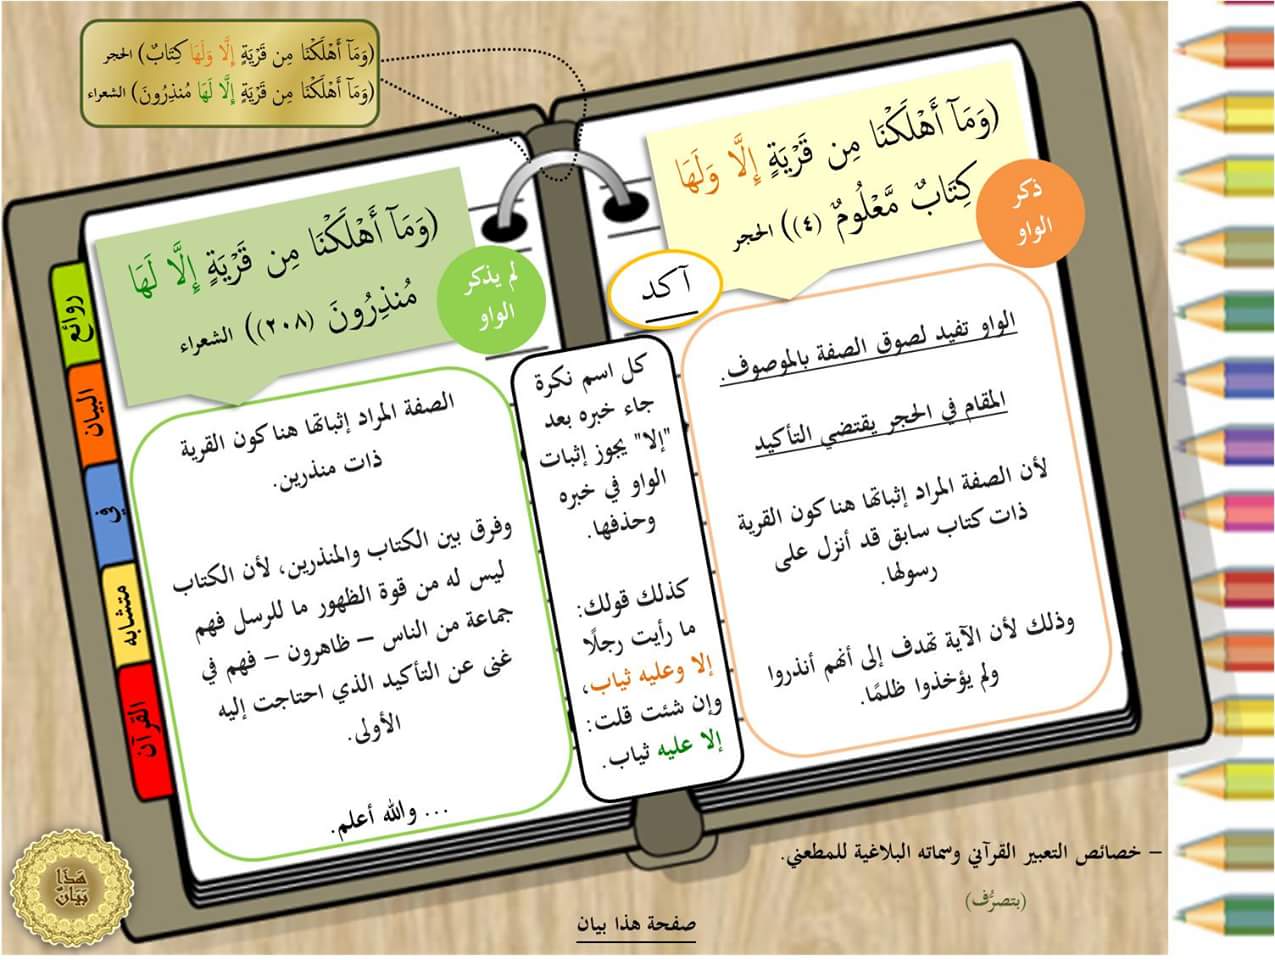 (وَمَآ أَهْلَكْنَا مِن قَرْيَةٍ إِلَّا وَلَهَا كِتَابٌ) الحجر
(وَمَآ أَهْلَكْنَا مِن قَرْيَةٍ إِلَّا لَهَا مُنذِرُونَ) الشعراء
(وَمَآ أَهْلَكْنَا مِن قَرْيَةٍ إِلَّا وَلَهَا
كِتَابٌ مَّعْلُومٌ (٤)) الحجر
ذكر
الواو
آكد
الواو تفيد لصوق الصفة بالموصوف.
المقام في الحجر يقتضي التأكيد
لأن الصفة المراد إثباتها هنا كون القرية
ذات كتاب سابق قد أنزل على
رسولها.
وذلك لأن الآية تهدف إلى أنهم أنذروا
ولم يؤخذوا ظلمًا.
كل اسم نكرة
جاء خبره بعد
"إلا" يجوز إثبات
الواو في خبره
وحذفها.
كذلك قولك:
ما رأيت رجلًا
إلا وعليه ثياب،
وإن شئت قلت:
إلا عليه ثياب.
(وَمَآ أَهْلَكْنَا مِن قَرْيَةٍ إِلَّا لَهَا
مُنذِرُونَ (٢٠٨)) الشعراء
لم يذكر
الواو
الصفة المراد إثباتها هنا كون القرية
ذات منذرين.
وفرق بين الكتاب والمنذرين، لأن الكتاب
ليس له من قوة الظهور ما للرسل فهم
جماعة من الناس – ظاهرون – فهم في
غنى عن التأكيد الذي احتاجت إليه
الأولى.
... والله أعلم.
روائع
البيان
في
متشابه
القرآن
– خصائص التعبير القرآني وسماته البلاغية للمطعني.
(بتصرُّف)
صفحة هذا بيان
هَذَا
بَيَانٌ